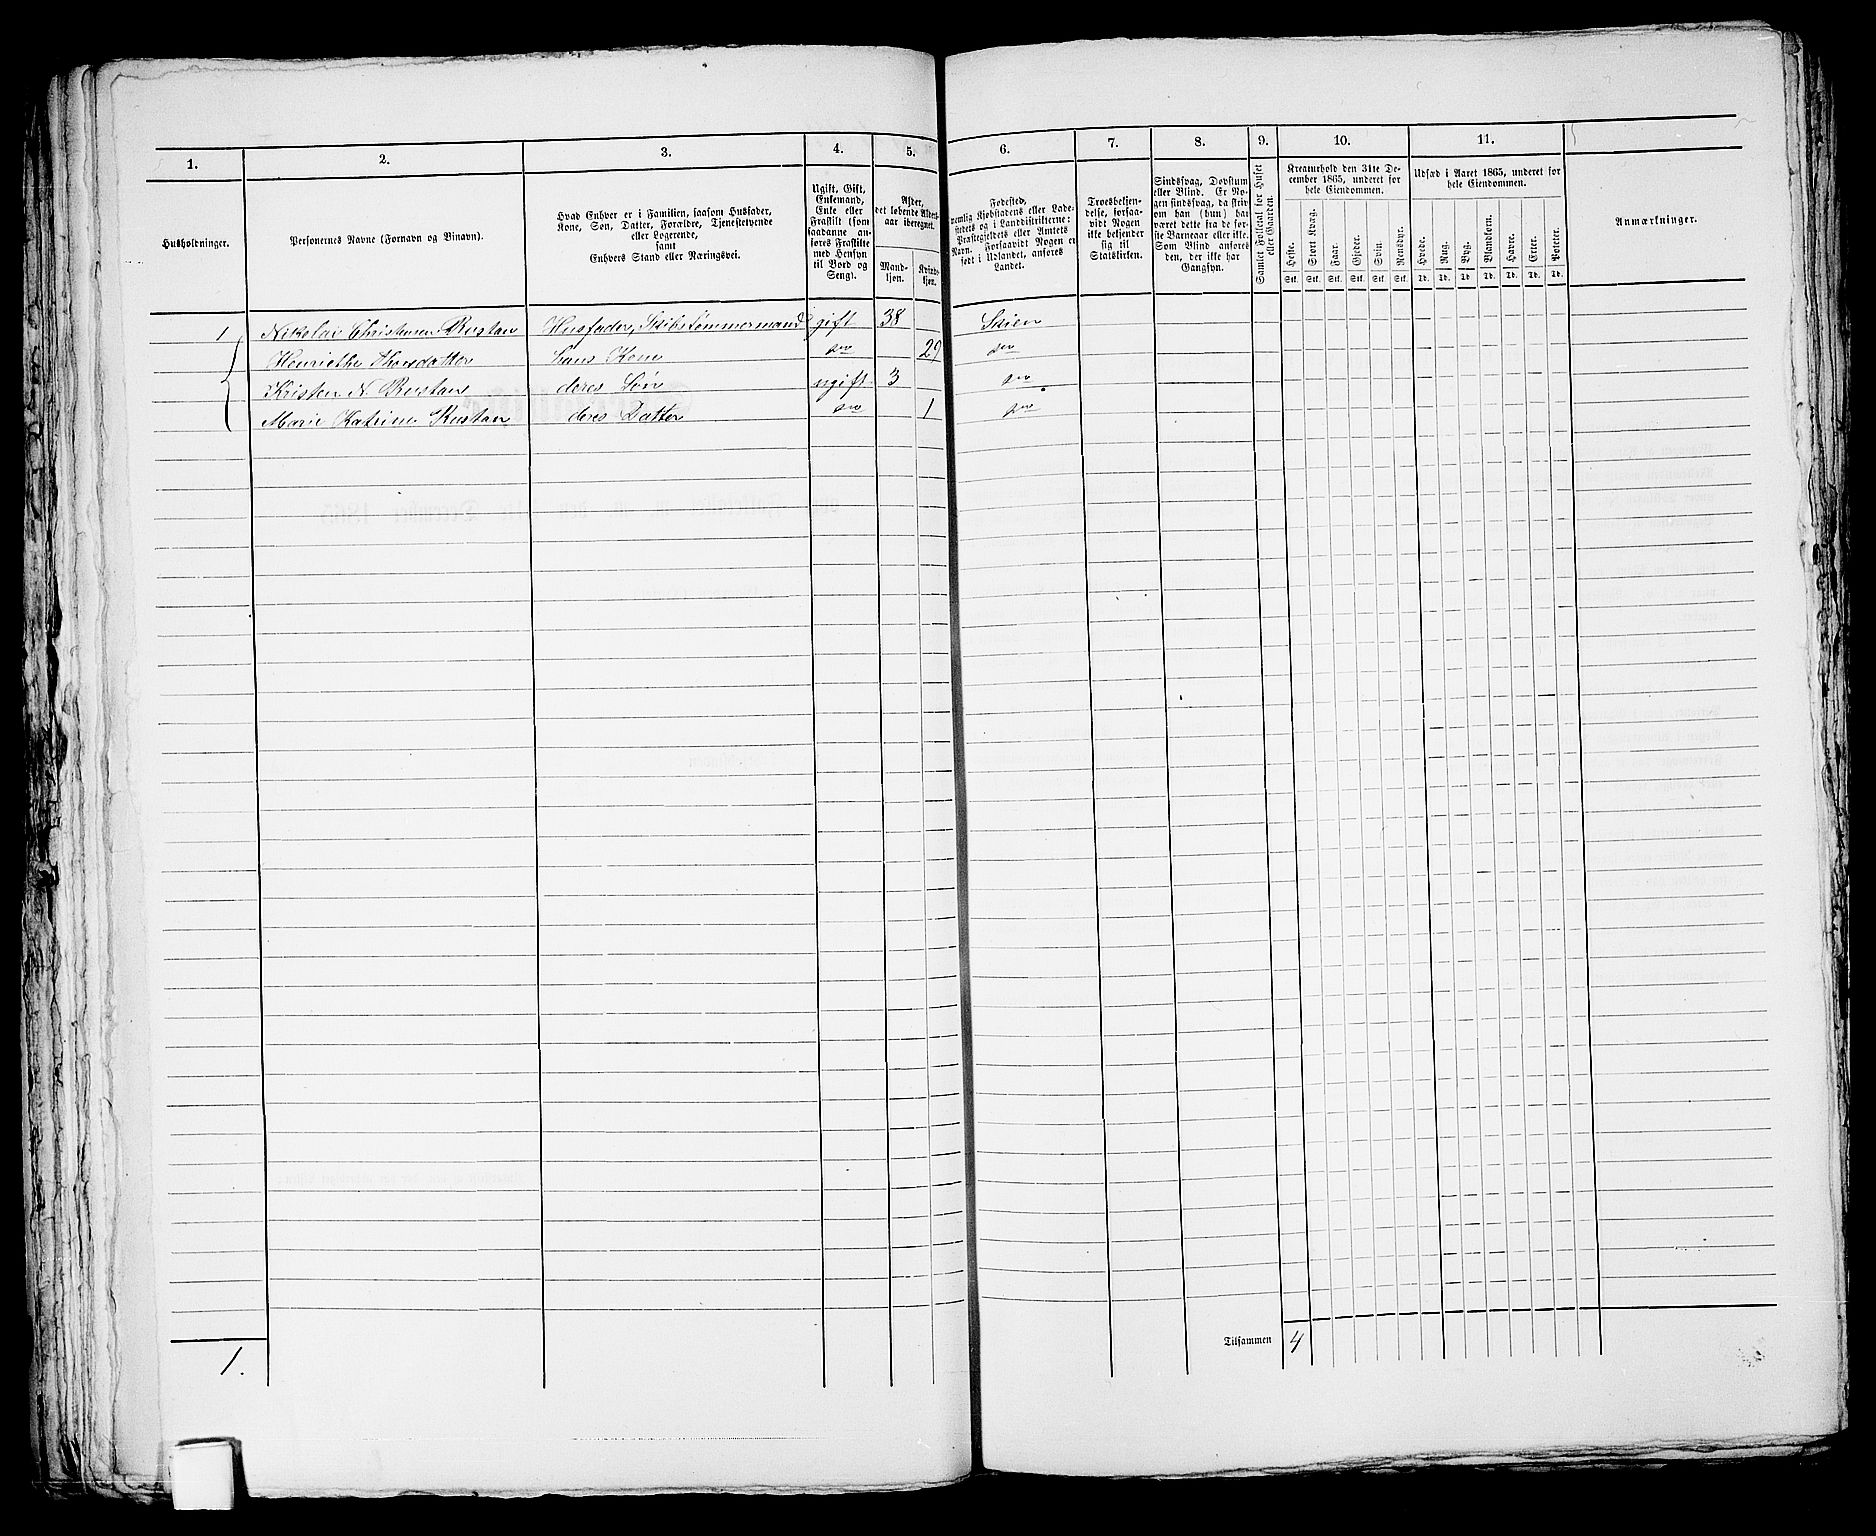 1. 2. 3. 4. 5. 6. 7. 8. 9. 10. 11.
Husholdninger.
Personernes Navne (Fornavn og Binavn).
Hvad Enhver er i Familien, saasom Husfader,
Kone, Søn, Datter, Forældre, Tjenestetyende
eller Logerende,
samt
Enhvers Stand eller Næringsvei.
Ugift, Gift,
Enkemand,
Enke eller
Fraskilt (som
saadanne an-
føres Fraskilte
med Hensyn
til Bord og
Seng).
Alder,
det løbende Alders-
aar iberegnet.
Mand-
kjøn.
Kvinde-
kjøn.
Fødested,
nemlig Kjøbstadens eller Lade-
stedets og i Landdistrikterne:
Præstegjeldets eller Amtets
Navn. Forsaavidt Nogen er
født i Udlandet, anføres
Landet.
Troesbekjen-
delse, forsaa-
vidt Nogen
ikke bekjender
sig til
Statskirken.
Sindssvag, Døvstum
eller Blind. Er No-
gen sindssvag, da skriv
om han (hun) har
været dette fra de før-
ste Barneaar eller ikke.
Som Blind anføres
den, der ikke har
Gangsyn.
Samlet Folketal for Huset
eller Gaarden.
Kreaturhold den 31te De-
cember 1865, underet for
hele Eiendommen.
Heste. Stort Kvæg. Faar. Gjeder. Svin. Rensdyr.
Stk. Stk. Stk. Stk. Stk. Stk.
Udsæd i Aaret 1865, underet for
hele Eiendommen.
Hvede. Rug. Byg. Blandkorn. Havre. Erter. Poteter.
Td. Td. Td. Td. Td. Td. Td.
Anmærkninger.
1 Nikolai Christensen Rustan Husfader, Skibstømmermand gift 38 Skien
Henriette Thorsdatter hans Kone do 29 do
Kristen N. Rustan deres Søn ugift 3 do
Marie Katrine Rustan deres Datter do 1 do
Tilsammen 4
1.